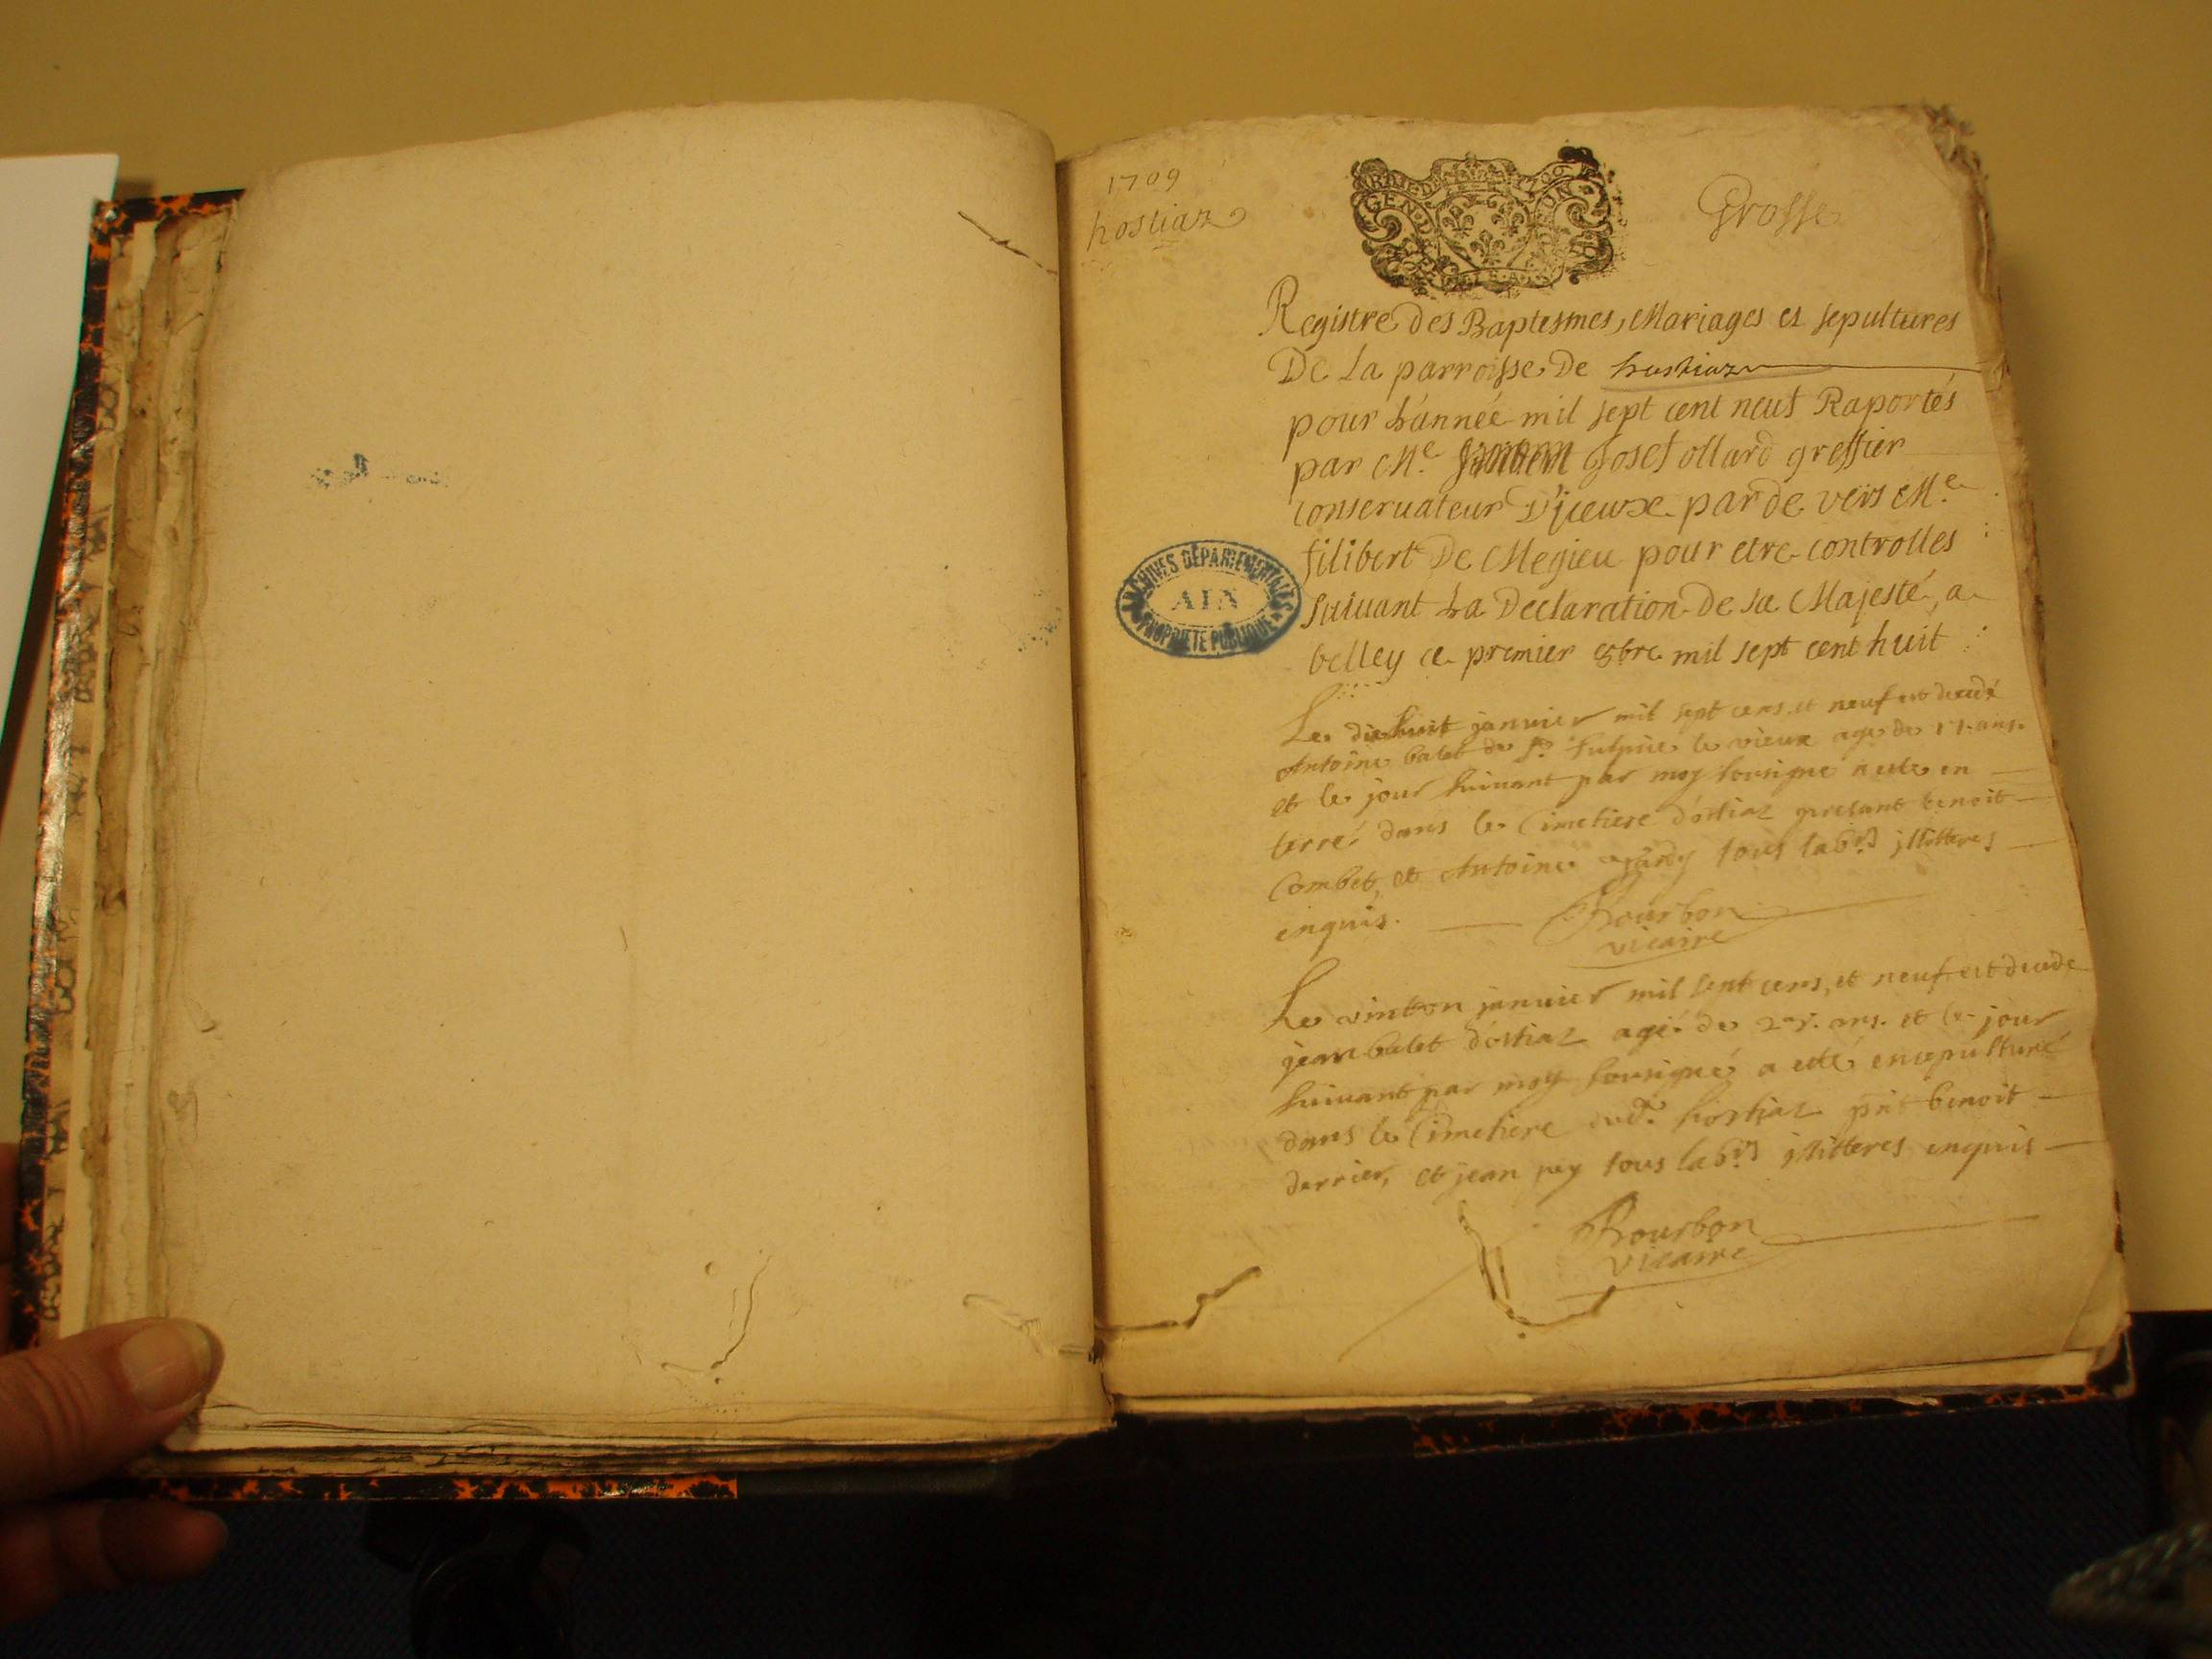 1709
hostiaz
Grosse
GEN
Registre des Baptesmes, Mariages et sepultures
De La parroisse De hostiaz
pour L'année mil sept cent neuf Raportés
par Me. Josef ollard greffier
conservateur D'jceux par de vers Me
filibert De Megieu pour etre controlles
suiuant La Declaration De sa Majesté, a
belley ce premier mil sept cent huit
ARCHIVES DÉPARTEMENTALES
AIN
PROPRIÉTÉ PUBLIQUE
Le dixhuit januier mil sept cens et neuf est decedé
Antoine balet de st. sulpice le vieux age de ans.
et le jour suiuant par moy sousigné a eté en
terré dans le Cimetiere d'ostiaz presant benoit
Combet, et Antoine tous labrs jllitteres
enquis.
Bourbon
vicaire
Le vinton januier mil sept cens, et neuf est decede
jean balet d'ostiaz agé de ans. et le jour
suiuant par moy sousigné a eté ensepulturé
dans le Cimetiere dud. hostiaz pnt benoit
derrier, et jean pey tous labrs jllitteres enquis
Bourbon
vicaire